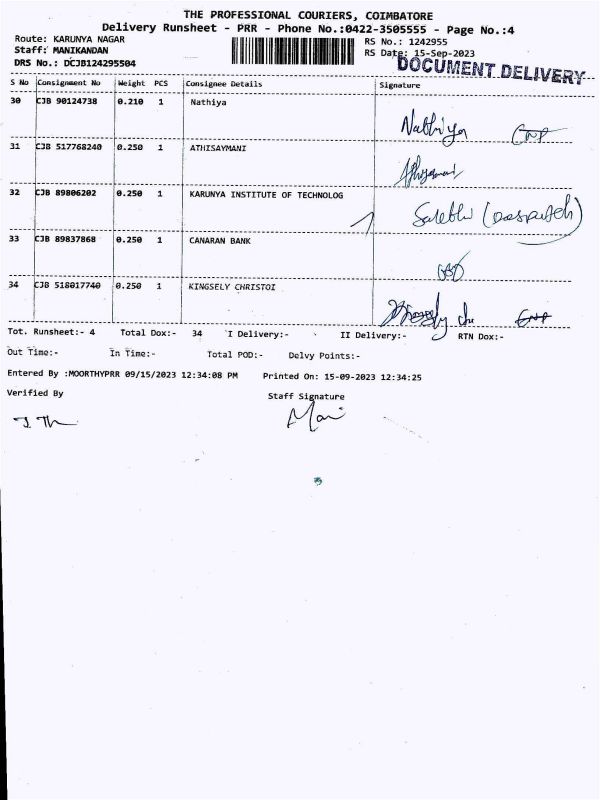 THE PROFESSIONAL COURIERS, COIMBATORE
Delivery Runsheet - PRR - Phone No.:0422-3505555 - Page No.:4
Route: KARUNYA NAGAR RS No.: 1242955
Staff: MANIKANDAN RS Date: 15-Sep-2023
DRS No.: DCJB124295504 DOCUMENT DELIVERY
S No Consignment No Weight PCS Consignee Details Signature
30 CJB 90124738 0.210 1 Nathiya
Nathiya
31 CJB 517768240 0.250 1 ATHISAYMANI
32 CJB 89806202 0.250 1 KARUNYA INSTITUTE OF TECHNOLOG
33 CJB 89837868 0.250 1 CANARAN BANK
34 CJB 518017740 0.250 1 KINGSELY CHRISTOI
Tot. Runsheet:- 4 Total Dox:- 34 I Delivery:- II Delivery:- RTN Dox:-
Out Time:- In Time:- Total POD:- Delvy Points:-
Entered By :MOORTHYPRR 09/15/2023 12:34:08 PM Printed On: 15-09-2023 12:34:25
Verified By Staff Signature
Mani